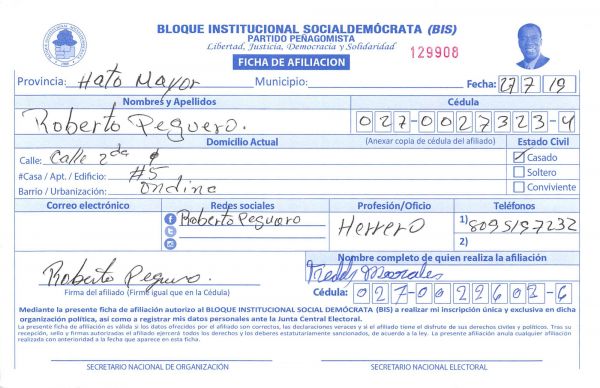 BLOQUE INSTITUCIONAL SOCIALDEMÓCRATA (BIS)
PARTIDO PEÑAGOMISTA
Libertad, Justicia, Democracia y Solidaridad
129908
FICHA DE AFILIACION
Provincia: Hato Mayor Municipio: Fecha: 27 7 19
Nombres y Apellidos Cédula
Roberto Peguero. 027-0027323-4
Domicilio Actual (Anexar copia de cédula del afiliado) Estado Civil
Calle: Calle 2da Casado
#Casa / Apt. / Edificio: #5 Soltero
Barrio / Urbanización: Ondina Conviviente
Correo electrónico Redes sociales Profesión/Oficio Teléfonos
Roberto Peguero Herrero 1) 8095197232
2)
Nombre completo de quien realiza la afiliación
Roberto Peguero. Freddy Morales
Firma del afiliado (Firme igual que en la Cédula) Cédula: 027-0022601-6
Mediante la presente ficha de afiliación autorizo al BLOQUE INSTITUCIONAL SOCIAL DEMÓCRATA (BIS) a realizar mi inscripción única y exclusiva en dicha
organización política, así como a registrar mis datos personales ante la Junta Central Electoral.
La presente ficha de afiliación es válida si los datos ofrecidos por el afiliado son correctos, las declaraciones veraces y si el afiliado tiene el disfrute de sus derechos civiles y políticos. Tras su
recepción, sello y firmas autorizadas el afiliado ejercerá todos los derechos y los deberes estatutariamente sancionados, de acuerdo a la ley. La presente afiliación anula cualquier afiliación
realizada con anterioridad a la fecha que aparece en esta ficha.
SECRETARIO NACIONAL DE ORGANIZACIÓN SECRETARIO NACIONAL ELECTORAL